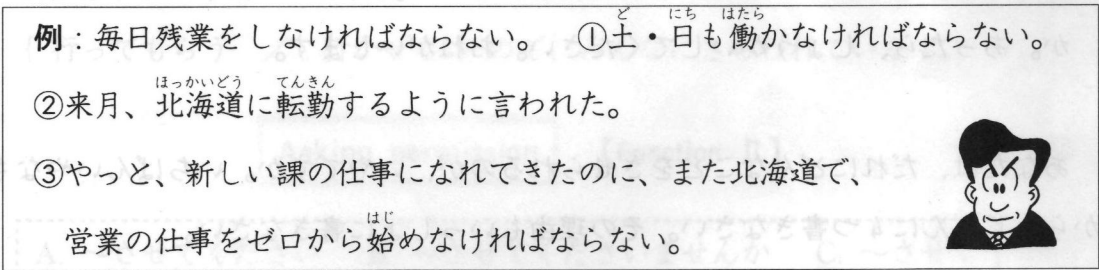 例：毎日残業をしなければならない。　①土・日も働かなければならない。
②来月、北海道に転勤するように言われた。
③やっと、新しい課の仕事になれてきたのに、また北海道で、
営業の仕事をゼロから始めなければならない。